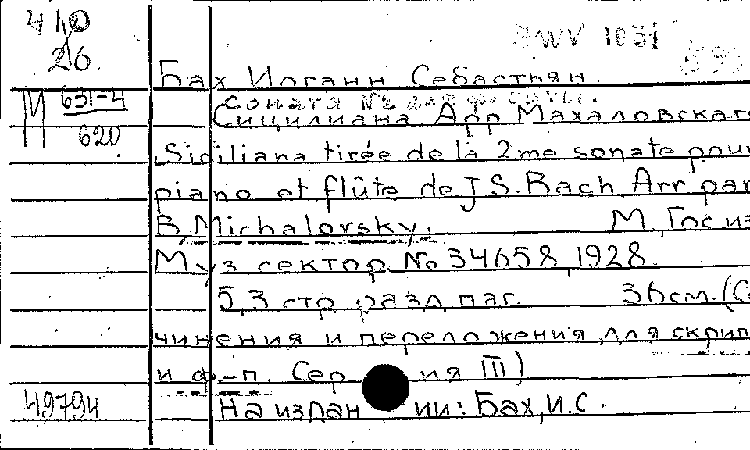 410
26.
BWV 1031
Бах Иоганн Себастьян.
М 631-4
620
Соната № 2 для флейты.
Сицилиана Арр Махаловского
Siciliana tirée de la 2me sonate pour
piano et flûte de J.S. Bach Arr par
B. Michalovsky. М., Гос из
Муз сектор № 34658, 1928.
5,3 стр разд паг. 36см. (Со
чинения и переложения для скрип
и ф-п. Серия III)
49794
На издании: Бах, И.С.